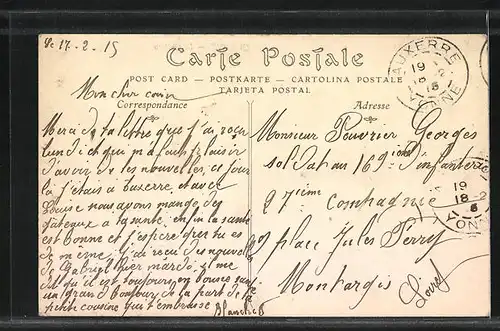 Le 17-2-15
Carte Postale
POST CARD — POSTKARTE — CARTOLINA POSTALE
TARJETA POSTAL
Mon cher cousin
Correspondance
Adresse
Merci de ta lettre que j'ai reçu
lundi et qui m'a fait plaisir
d'avoir de tes nouvelles, ce jour
là j'étais à auxerre et avec
Louise nous avons mangé des
gateaux a ta santé. enfin la santé
est bonne et j'espère que tu es
de même, j'ai recu des nouvelles
de Gabriel hier mardi, il me
dit qu'il est toujours en bonne santé
un grand bonjour de la part de ta
petite cousine qui t'embrasse
Blanche B
Monsieur Georges
soldat au 169ième d'infanterie
27ième compagnie
place Jules Ferry
Montargis
Loiret
AUXERRE
19
18-2
15
YONNE
19
18-2
YONNE